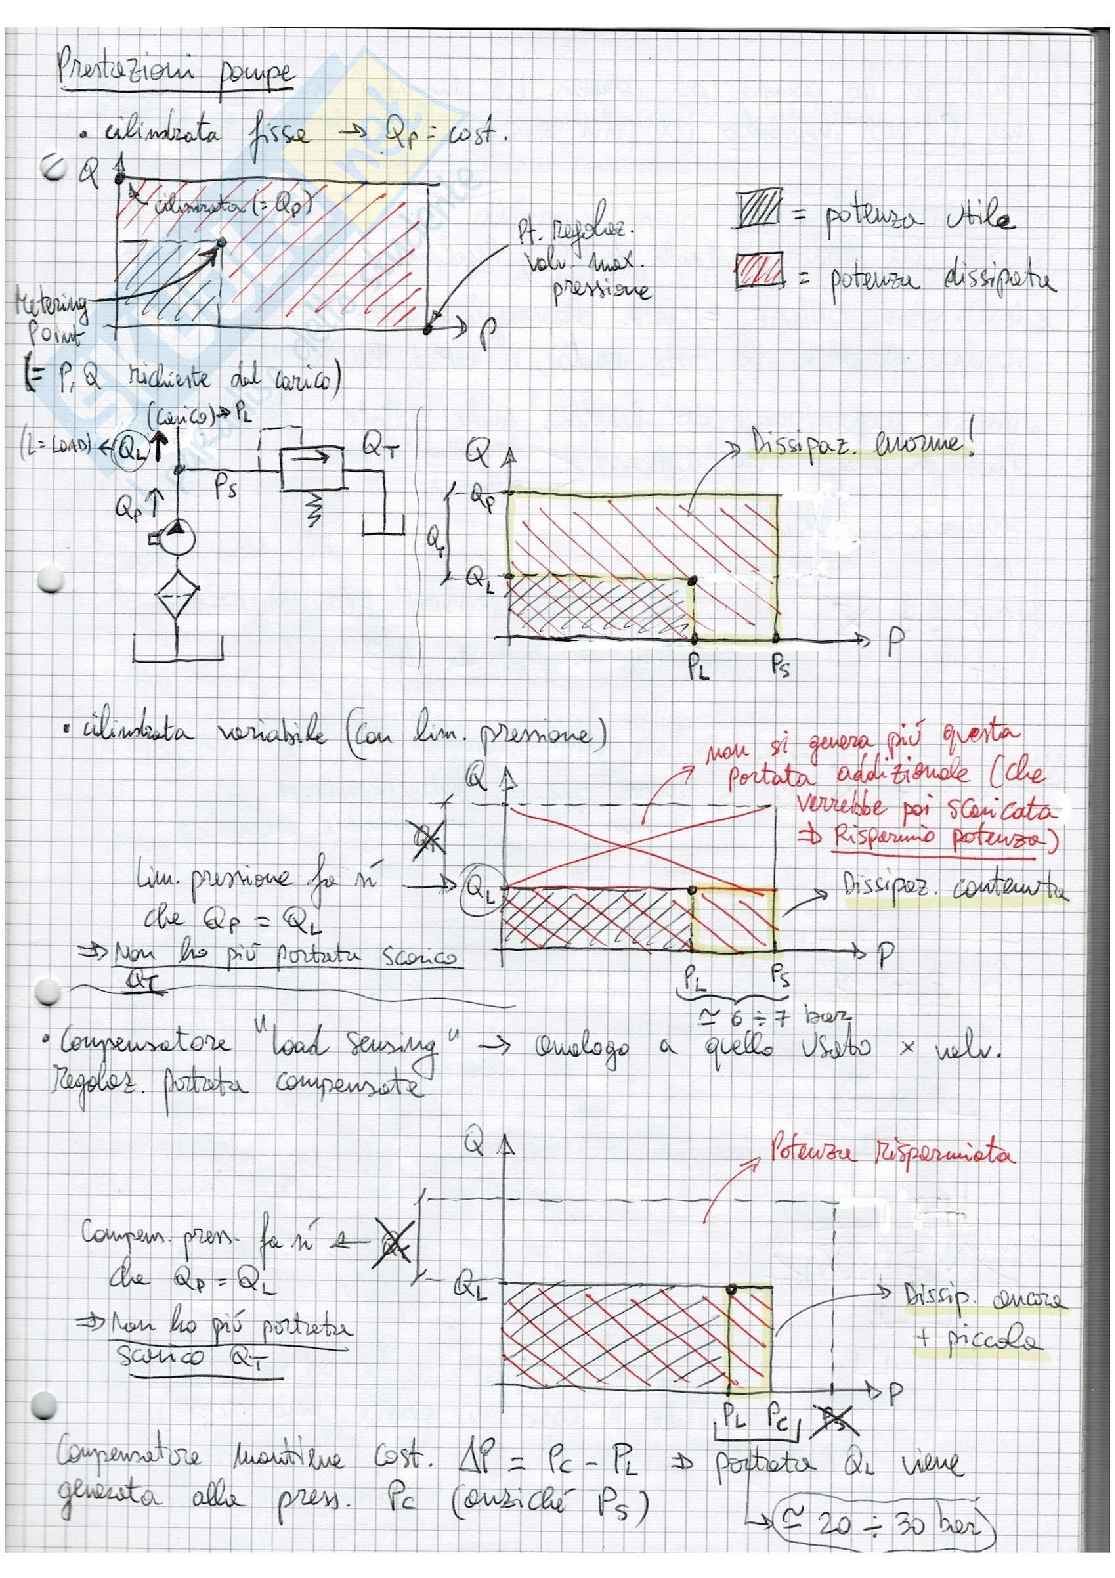 Prestazioni pompe
• cilindrata fissa → Qp = cost.
Q
cilindrata (= Qp)
Pt. regolaz.
valv. max.
pressione
= potenza utile
= potenza dissipata
Metering
Point
P
(= P, Q richieste dal carico)
(carico) → PL
(L = LOAD) ← QL
QT
PS
Qp
Q
Dissipaz. enorme!
Qp
QT
QL
P
PL
PS
• cilindrata variabile (con lim. pressione)
non si genera più questa
portata addizionale (che
verrebbe poi scaricata
⇒ Risparmio potenza)
Q
QT
Lim. pressione fa sì
che Qp = QL
⇒ Non ho più portata scarico
QT
QL
Dissipaz. contenuta
P
PL
PS
≃ 6 ÷ 7 bar
• Compensatore "load sensing" → analogo a quello usato x valv.
regolaz. portata compensate
Q
Potenza risparmiata
Compens. press. fa sì ← QT
che Qp = QL
⇒ Non ho più portata
scarico QT
QL
Dissip. ancora
+ piccola
P
PL
PC
PS
Compensatore mantiene cost. ΔP = PC - PL ⇒ portata QL viene
generata alla press. PC (anziché PS)
≃ 20 ÷ 30 bar